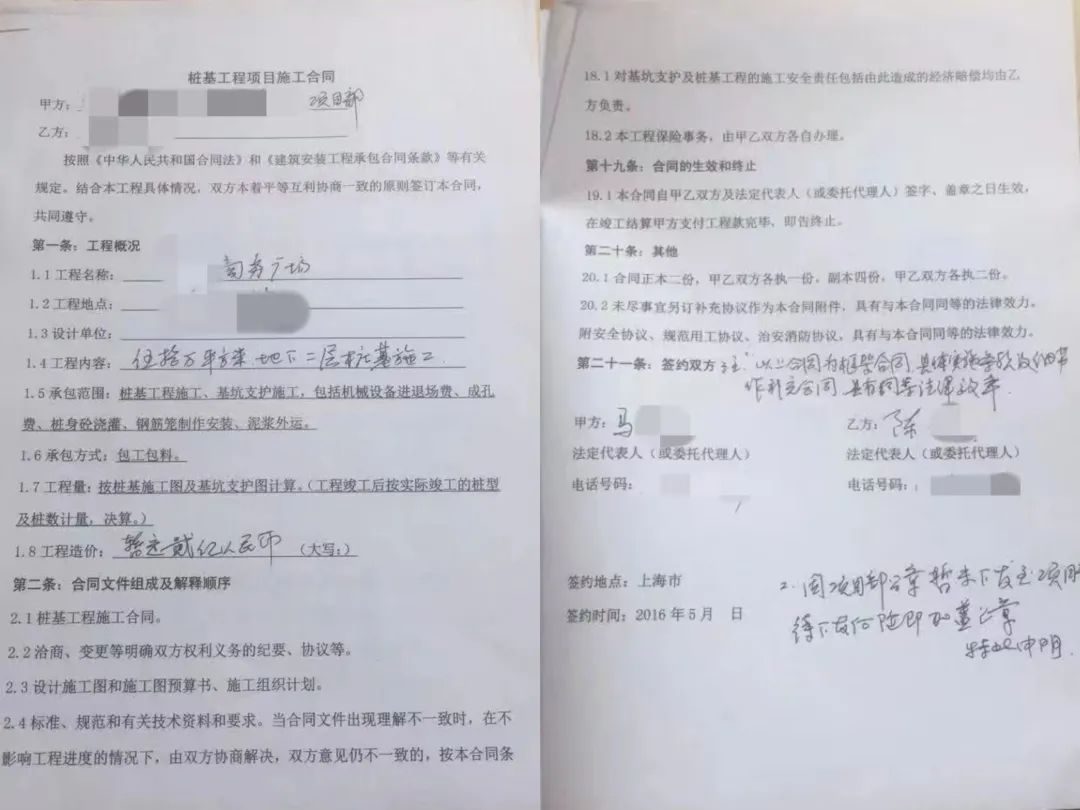 桩基工程项目施工合同
甲方： 项目部
乙方：
按照《中华人民共和国合同法》和《建筑安装工程承包合同条款》等有关
规定。结合本工程具体情况，双方本着平等互利协商一致的原则签订本合同，
共同遵守。
第一条：工程概况
1.1 工程名称： 商务广场
1.2 工程地点：
1.3 设计单位：
1.4 工程内容： 伍拾万平方米.地下二层桩基施工.
1.5 承包范围：桩基工程施工、基坑支护施工，包括机械设备进退场费、成孔
费、桩身砼浇灌、钢筋笼制作安装、泥浆外运。
1.6 承包方式：包工包料。
1.7 工程量：按桩基施工图及基坑支护图计算。（工程竣工后按实际竣工的桩型
及桩数计量，决算。）
1.8 工程造价： 暂定贰亿人民币 （大写：）
第二条：合同文件组成及解释顺序
2.1 桩基工程施工合同。
2.2 洽商、变更等明确双方权利义务的纪要、协议等。
2.3 设计施工图和施工图预算书、施工组织计划。
2.4 标准、规范和有关技术资料和要求。当合同文件出现理解不一致时，在不
影响工程进度的情况下，由双方协商解决，双方意见仍不一致的，按本合同条
18.1 对基坑支护及桩基工程的施工安全责任包括由此造成的经济赔偿均由乙
方负责。
18.2 本工程保险事务，由甲乙双方各自办理。
第十九条：合同的生效和终止
19.1 本合同自甲乙双方及法定代表人（或委托代理人）签字、盖章之日生效，
在竣工结算甲方支付工程款完毕，即告终止。
第二十条：其他
20.1 合同正本二份，甲乙双方各执一份，副本四份，甲乙双方各执二份。
20.2 未尽事宜另订补充协议作为本合同附件，具有与本合同同等的法律效力。
附安全协议、规范用工协议、治安消防协议，具有与本合同同等的法律效力。
第二十一条：签约双方 注：以上合同为框架合同，具体实施
作补充合同，具有同等法律效率.
甲方：马 乙方：陈
法定代表人（或委托代理人） 法定代表人（或委托代理人）
电话号码： 电话号码：
签约地点：上海市
签约时间：2016 年 5 月 日
2.因项目部公章暂未下发至项目部
待下发后随即加盖公章
特此申明.